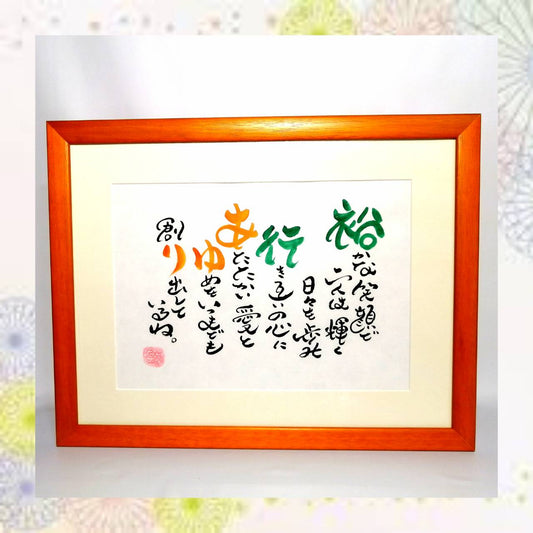 裕かな笑顔で
二人は輝く
日々を歩み
行き いの心に
あたたかい愛と
ゆめをいつまでも
創り出して
いるね。